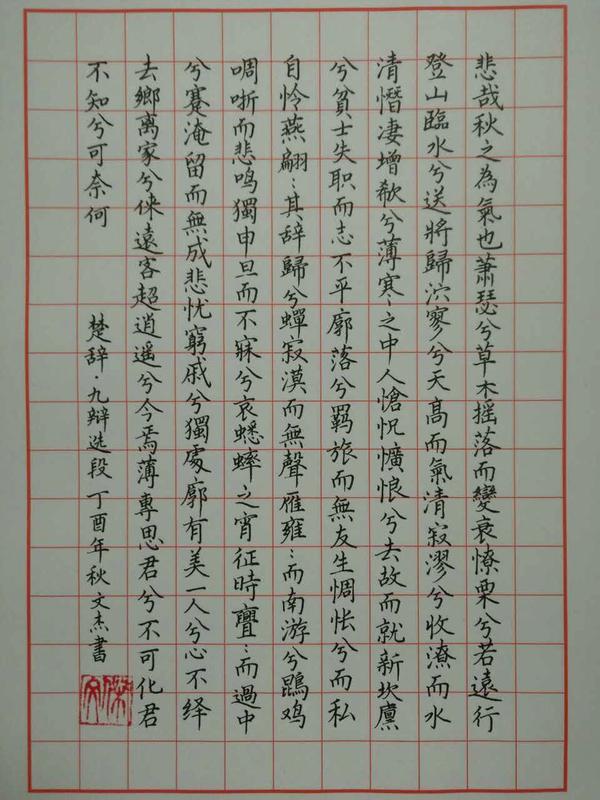 悲哉秋之為氣也蕭瑟兮草木摇落而變衰憭栗兮若遠行
登山臨水兮送將歸泬寥兮天高而氣清寂漻兮收潦而水
清憯凄增欷兮薄寒〻之中人愴怳懭悢兮去故而就新坎廩
兮貧士失职而志不平廓落兮羁旅而無友生惆怅兮而私
自怜燕翩〻其辞歸兮蟬寂漠而無聲雁雍〻而南游兮鵾鸡
啁哳而悲鸣獨申旦而不寐兮哀蟋蟀之宵征時亹〻而過中
兮蹇淹留而無成悲忧窮戚兮獨處廓有美一人兮心不绎
去鄉离家兮倈遠客超逍遥兮今焉薄專思君兮不可化君
不知兮可奈何
楚辞·九辯选段丁酉年秋文杰書
文杰